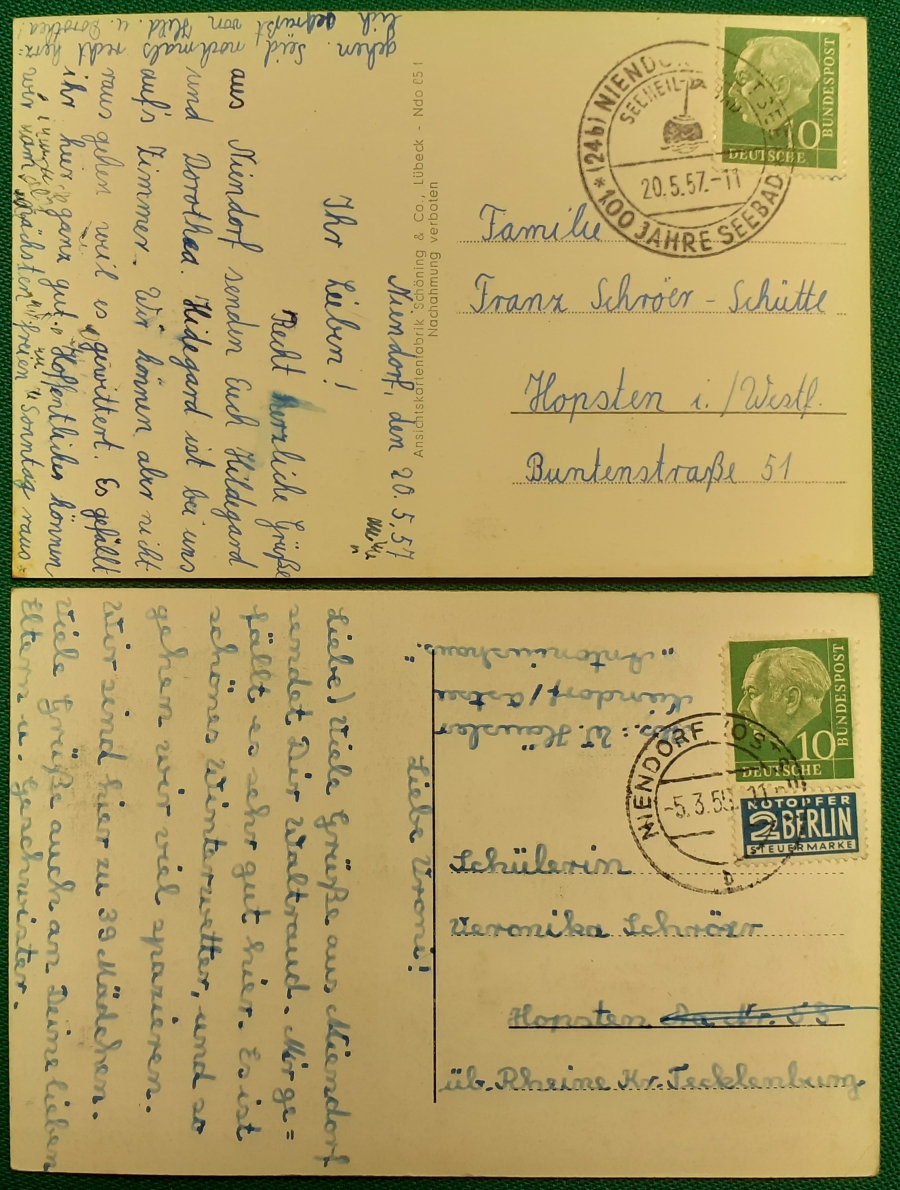 Niendorf, den 20.5.57
Ihr Lieben!
Recht herzliche Grüße
aus Niendorf senden Euch Hildegard
und Dorothea. Hildegard ist bei uns
auf's Zimmer. Wir können aber nicht
raus gehen weil es gewittert. Es gefällt
ihr hier ganz gut. Hoffentlich können
wir am nächsten freien Sonntag raus=
gehen. Seid nochmals recht herz=
lich gegrüßt von Hild. u. Dorothea!
Ansichtskartenfabrik Schöning & Co., Lübeck - Ndo 05 1
Nachahmung verboten
10
DEUTSCHE
BUNDESPOST
*(24b) NIENDO
SEEHEIL-
20.5.57.-11
100 JAHRE SEEBAD
Familie
Franz Schröer-Schütte
Hopsten i./Westf.
Buntenstraße 51
Liebe Vroni!
Liebe) Viele Grüße aus Niendorf
sendet Dir Waltraud. Mir ge=
fällt es sehr gut hier. Es ist
schönes Winterwetter, und so
gehen wir viel spazieren.
Wir sind hier zu 39 Mädchen.
Viele Grüße auch an Deine lieben
Eltern u. Geschwister.
Abs.: W. Häusler
Niendorf/Ostsee
"Antoniushaus"
10
DEUTSCHE
BUNDESPOST
NOTOPFER
2 BERLIN
STEUERMARKE
NIENDORF (OST
-5.3.5
b
Schülerin
Veronika Schröer
Hopsten
üb. Rheine Kr. Tecklenburg